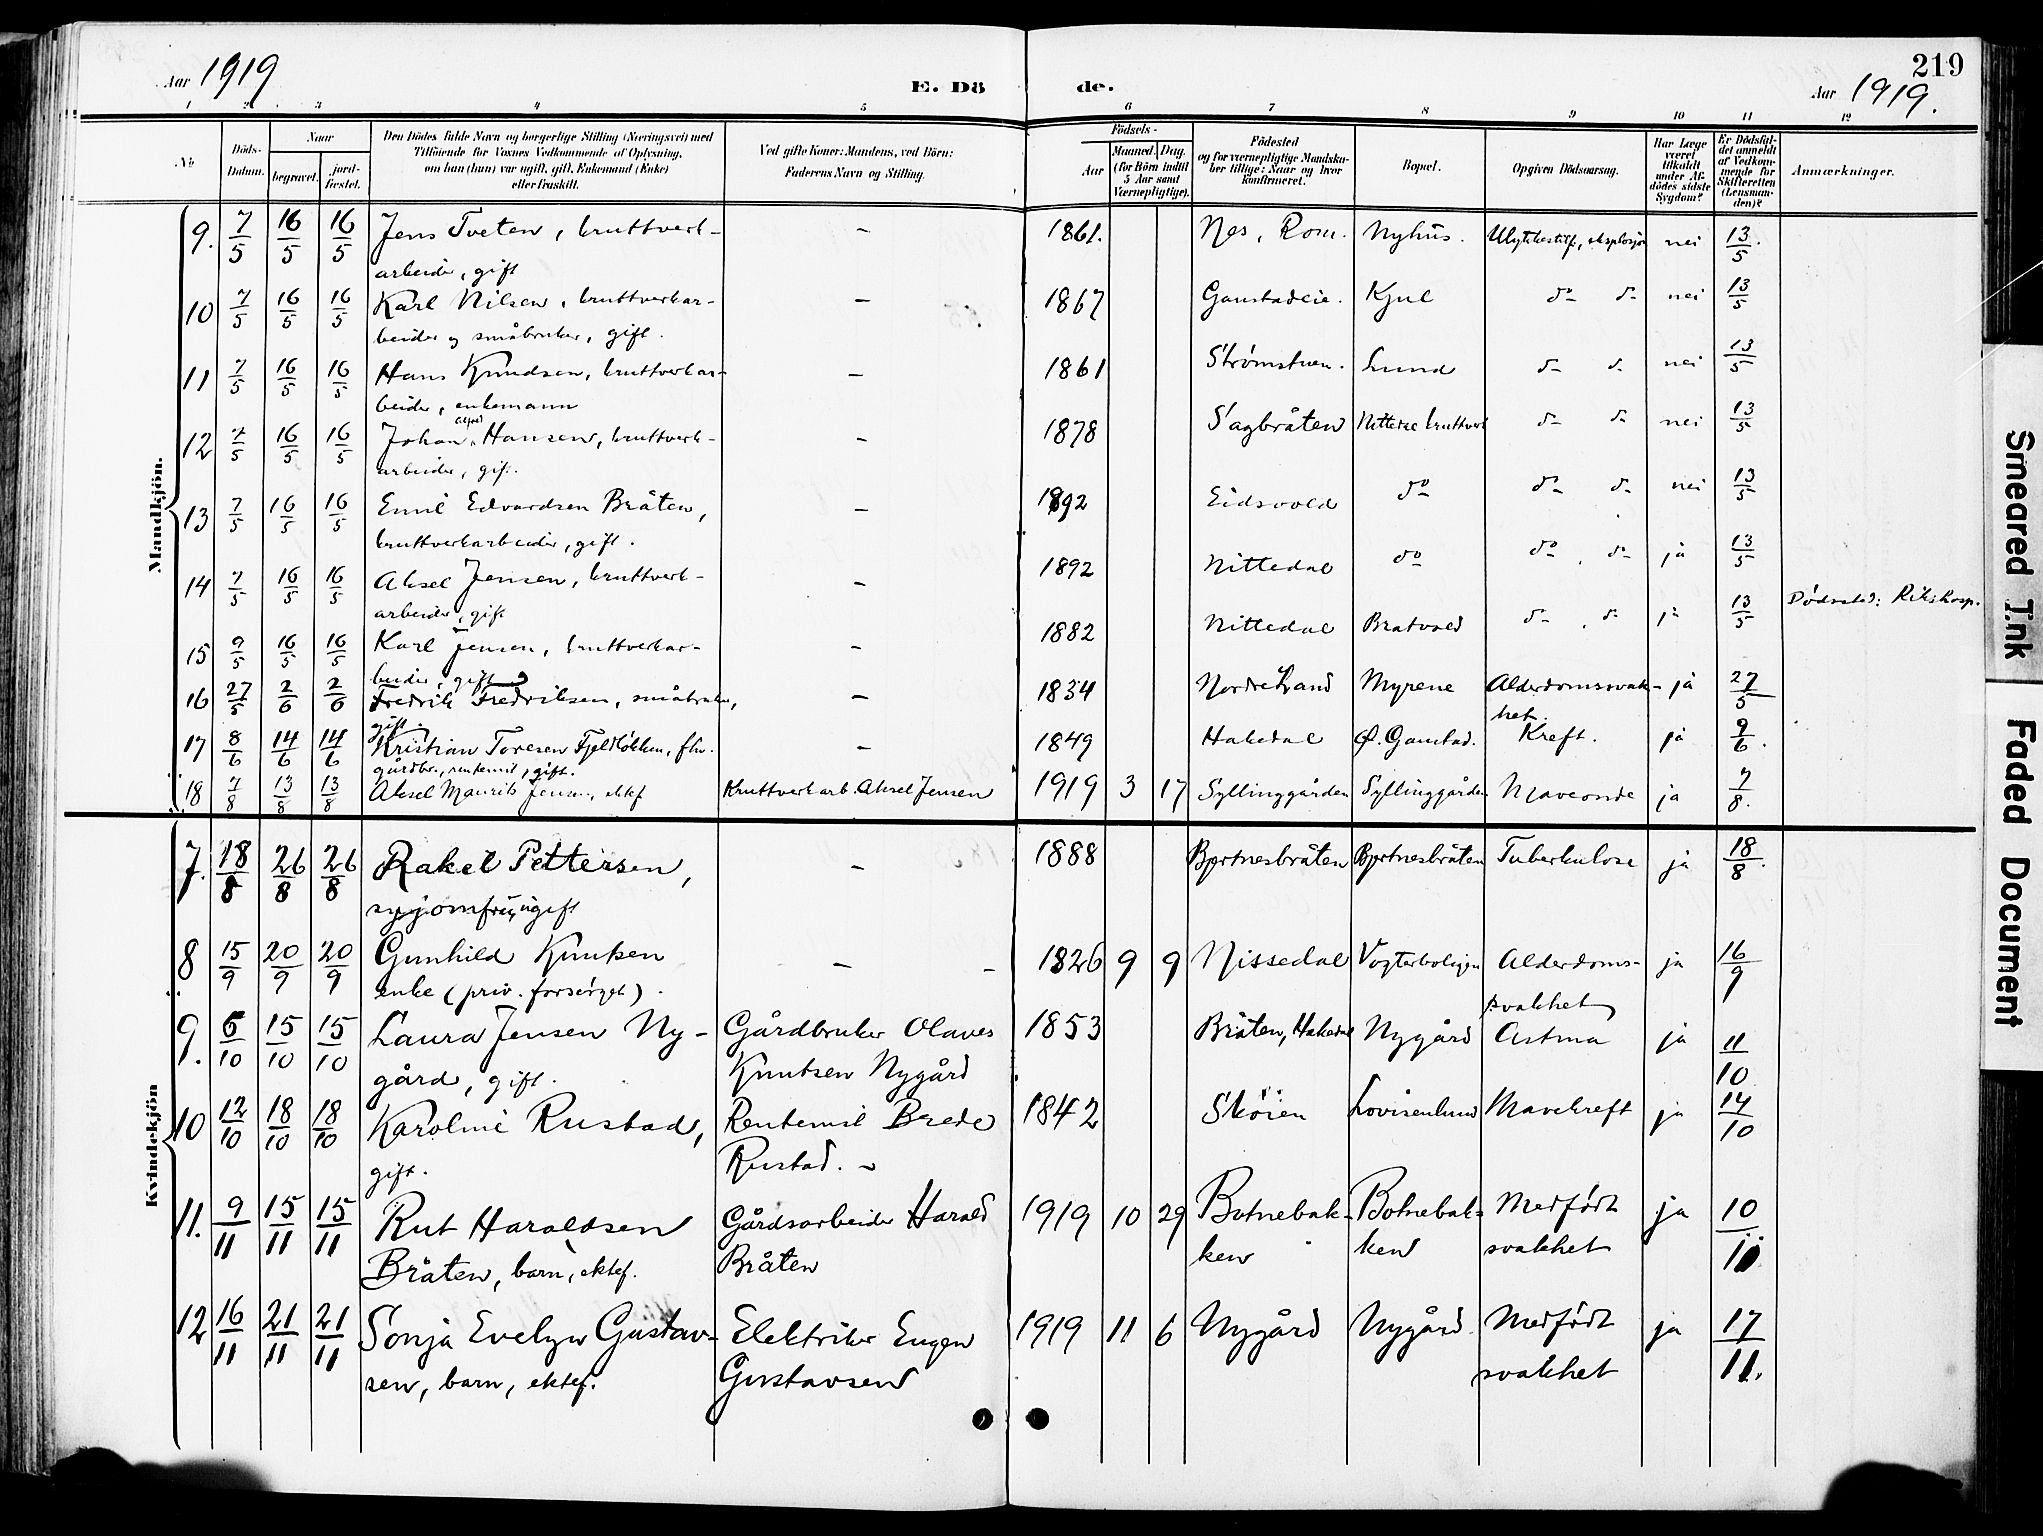 Aar 1919
E. Dö
de.
219
Aar 1919.
1 2 3 4 5 6 7 8 9 10 11 12
No
Döds-Datum.
Naar
begravet.
jord-fæstet.
Den Dödes fulde Navn og borgerlige Stilling (Næringsvei) med
Tilföiende for Voxnes Vedkommende af Oplysning,
om han (hun) var ugift, gift, Enkemand (Enke)
eller fraskilt.
Ved gifte Koner: Mandens, ved Börn:
Faderens Navn og Stilling.
Födsels-
Aar
Maaned. Dag.
(for Börn indtil
5 Aar samt
Værnepligtige).
Födested
og for værnepligtige Mandska-
ber tillige: Naar og hvor
konfirmeret.
Bopæl.
Opgiven Dödsaarsag.
Har Læge
været
tilkaldt
under Af-
dödes sidste
Sygdom?
Er Dödsfal-
det anmeldt
af Vedkom-
mende for
Skifteretten
(Lensman-
den)?
Anmærkninger.
Mandkjön.
9. 7/5 16/5 16/5 Jens Tveten, kruttverk- – 1861. Nes, Rom. Nyhus. Ulykkestilf., eksplosjon nei 13/5.
arbeider, gift
10 7/5 16/5 16/5 Karl Nilsen, kruttverkar- – 1867 Ganstadeie. Kjul do do nei 13/5
beider og småbruker, gift.
11 7/5 16/5 16/5 Hans Knudsen, kruttverkar- – 1861 Strømstuen. Lund do do nei 13/5
beider, enkemann
12 7/5 16/5 16/5 Johan Alfred Hansen, kruttverk- – 1878 Sagbråten Nittedal kruttverk do do nei 13/5
arbeider, gift.
13 7/5 16/5 16/5 Emil Edvardsen Bråten, – 1892 Eidsvold do do do nei 13/5
kruttverkarbeider, gift.
14 7/5 16/5 16/5 Aksel Jensen, kruttverk- – 1892 Nittedal do do do ja 13/5
arbeider, gift
15 9/5 16/5 16/5 Karl Jensen, kruttverkar- – 1882 Nittedal Bratvold do do ja 13/5 Dødssted: Rikshosp.
beider, gift
16 27/5 2/6 2/6 Fredrik Fredriksen, småbruker, – 1834 Nordre Land Myrene Alderdomssvak- ja 27/5
gift. het.
17 8/6 14/6 14/6 Kristian Toresen Fjeldløkken, fhv. – 1849 Hakedal Ø. Ganstad. Kreft. ja 9/6.
gårdbr., rentenist, gift.
18 7/8 13/8 13/8 Aksel Maurits Jensen, ektef Kruttverkarb. Aksel Jensen 1919 3 17 Syllinggården Syllinggården Maveonde ja 7/8.
Kvindekjön
7. 18/8 26/8 26/8 Rakel Pettersen, – 1888 Bjørtnesbråten Bjørtnesbråten Tuberkulose ja 18/8.
syjomfru, ugift
8 15/9 20/9 20/9 Gunhild Knutsen – – 1826 9 9 Nissedal Vogterboligen Alderdoms- ja 16/9
enke (priv. forsørget). svakhet
9. 6/10 15/10 15/10 Laura Jensen Ny- Gårdbruker Olaves 1853 Bråten, Hakedal Nygård Astma ja 11/10
gård, gift. Knutsen Nygård
10 12/10 18/10 18/10 Karoline Rustad, Rentenist Brede 1842 Skøien Lovisenlund Mavekreft ja 14/10
gift. Rustad. –
11. 9/11 15/11 15/11 Rut Haraldsen Gårdsarbeider Harald 1919 10 29 Botnebak- Botnebak- Medfødt ja 10/11
Bråten, barn, ektef. Bråten ken ken svakhet
12 16/11 21/11 21/11 Sonja Evelyn Gustav- Elektriker Eugen 1919 11 6 Nygård Nygård Medfødt ja 17/11.
sen, barn, ektef. Gustavsen svakhet
Smeared Ink
Faded Document